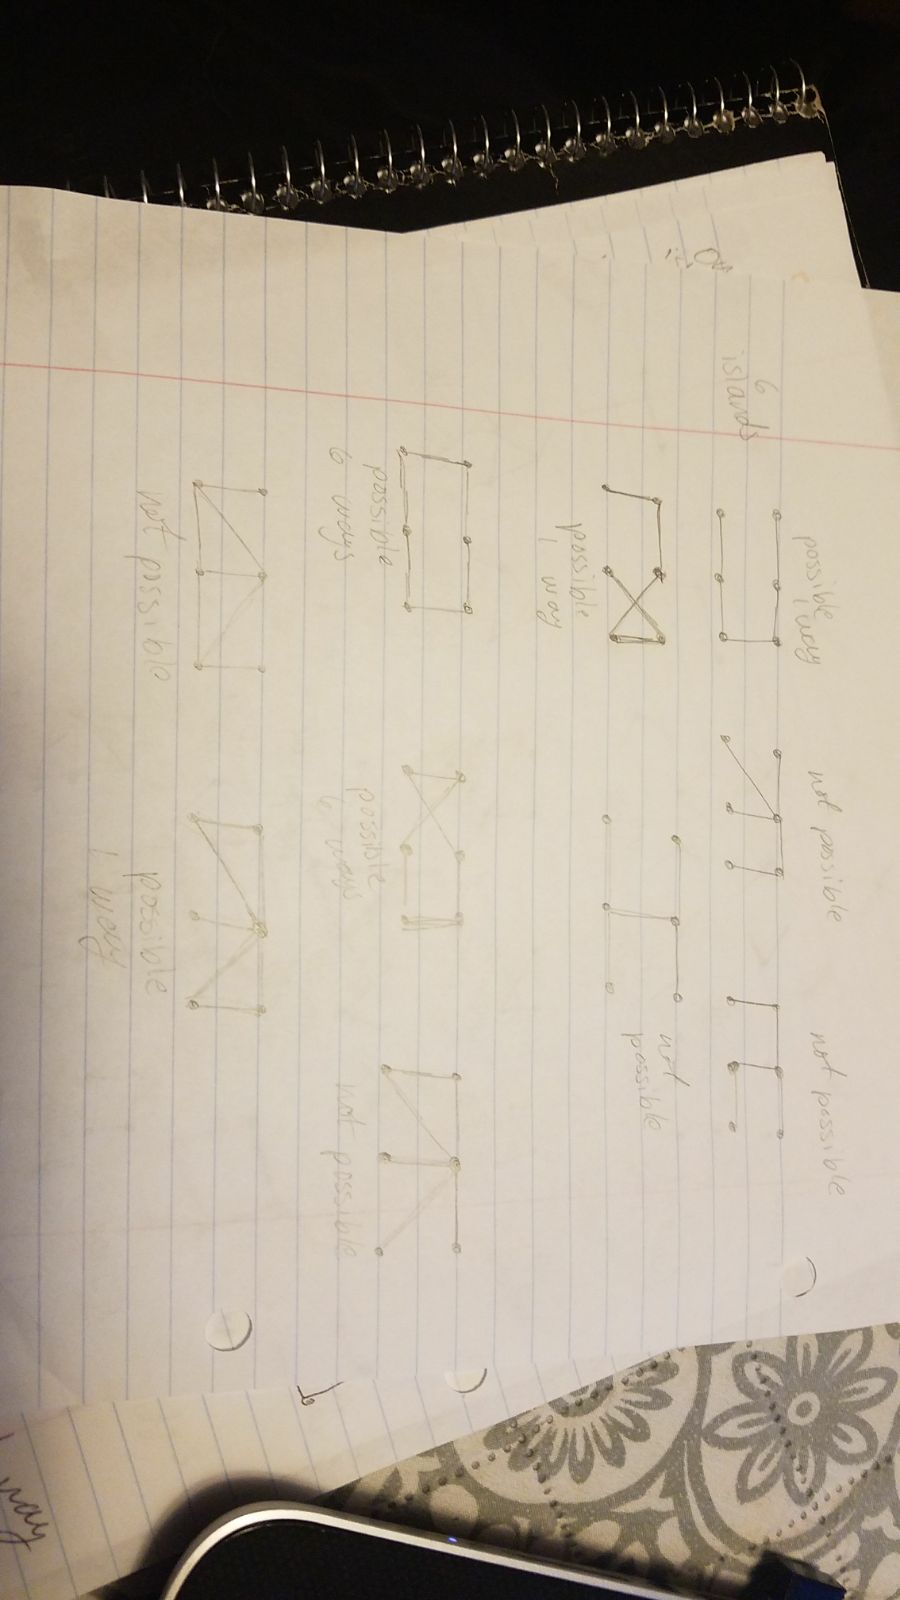 6
islands
possible
1 way
not possible
not possible
possible
1 way
not
possible
possible
6 ways
possible
6 ways
not possible
not possible
possible
1 way
way